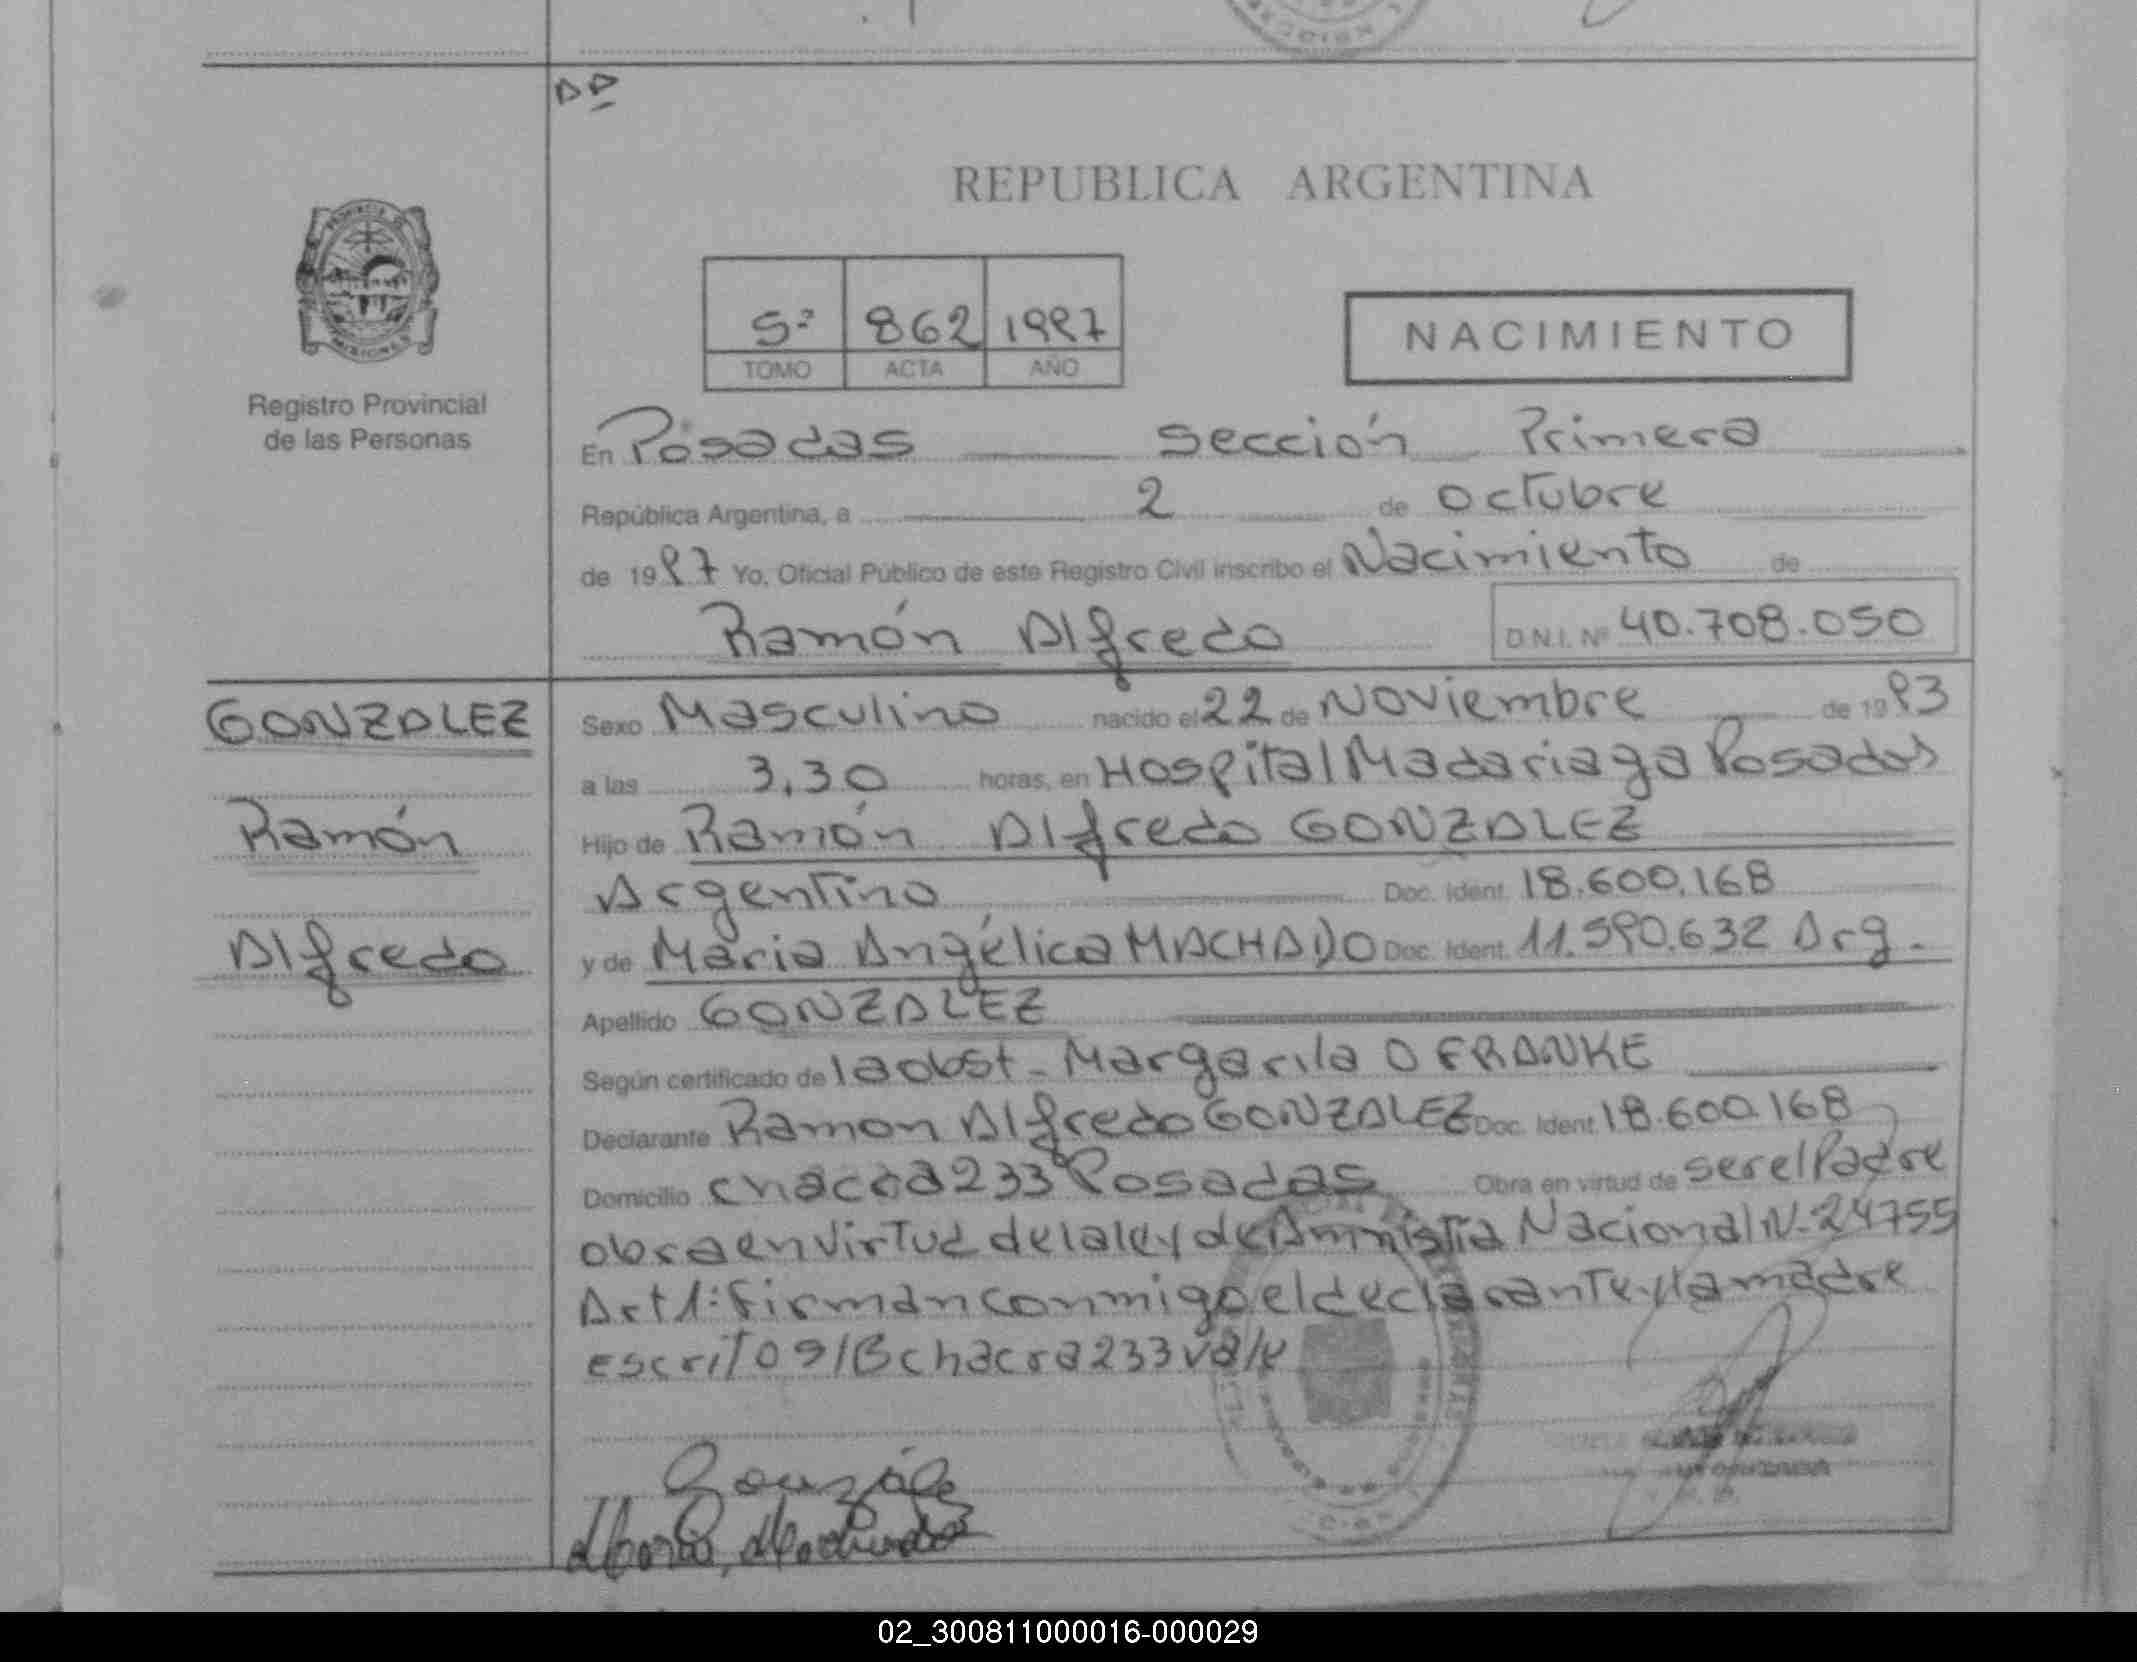 DP
REPUBLICA ARGENTINA
5º 862 1997
TOMO ACTA AÑO
NACIMIENTO
MISIONES
Registro Provincial
de las Personas
En Posadas Sección Primera
República Argentina, a 2 de Octubre
de 1997 Yo, Oficial Público de este Registro Civil inscribo el Nacimiento de
Ramón Alfredo D.N.I. Nº 40.708.050
GONZALEZ
Ramón
Alfredo
Sexo Masculino nacido el 22 de Noviembre de 1993
a las 3,30 horas, en Hospital Madariaga Posadas
Hijo de Ramón Alfredo GONZALEZ
Argentino Doc. Ident. 18.600.168
y de María Angélica MACHADO Doc. Ident. 11.590.632 Arg.
Apellido GONZALEZ
Según certificado de la obst. Margarita O FRANKE
Declarante Ramon Alfredo GONZALEZ Doc. Ident. 18.600.168
Domicilio chacra 233 Posadas Obra en virtud de ser el Padre
obra en virtud de la ley de Amnistía Nacional N. 24755
Art 1: firman conmigo el declarante y la madre
escrito s/B chacra 233 vale
González
María Machado
02_300811000016-000029